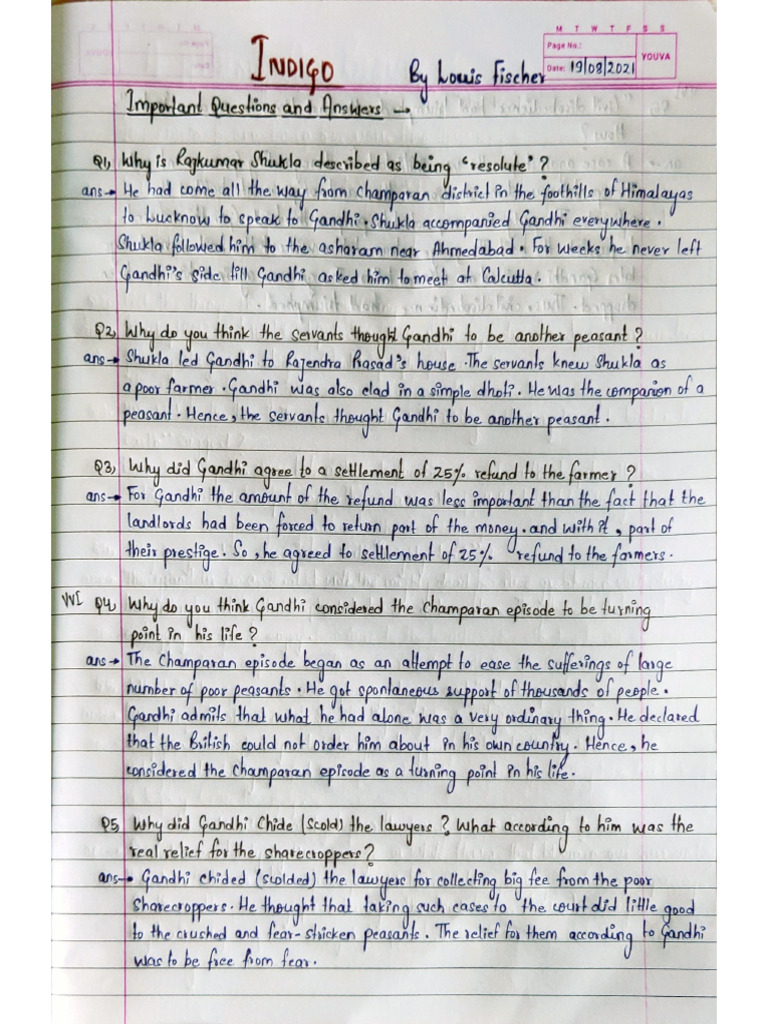 M T W T F S S
Page No.:
YOUVA
Date: 19/08/2021
INDIGO By Louis Fischer
Important Questions and Answers →
Q1, Why is Rajkumar Shukla described as being 'resolute'?
ans→ He had come all the way from champaran district in the foothills of Himalayas
to Lucknow to speak to Gandhi. Shukla accompanied Gandhi everywhere.
Shukla followed him to the asharam near Ahmedabad. For weeks he never left
Gandhi's side till Gandhi asked him to meet at Calcutta.
Q2, Why do you think the servants thought Gandhi to be another peasant?
ans→ Shukla led Gandhi to Rajendra Prasad's house. The servants knew Shukla as
a poor farmer. Gandhi was also clad in a simple dhoti. He was the companion of a
peasant. Hence, the servants thought Gandhi to be another peasant.
Q3, Why did Gandhi agree to a settlement of 25% refund to the farmer?
ans→ For Gandhi the amount of the refund was less important than the fact that the
landlords had been forced to return part of the money. and with it, part of
their prestige. So, he agreed to settlement of 25% refund to the farmers.
VVI Q4, Why do you think Gandhi considered the Champaran episode to be turning
point in his life?
ans→ The Champaran episode began as an attempt to ease the sufferings of large
number of poor peasants. He got spontaneous support of thousands of people.
Gandhi admits that what he had alone was a very ordinary thing. He declared
that the British could not order him about in his own country. Hence, he
considered the Champaran episode as a turning point in his life.
Q5, Why did Gandhi Chide (Scold) the lawyers? What according to him was the
real relief for the sharecroppers?
ans→ Gandhi chided (scolded) the lawyers for collecting big fee from the poor
Sharecroppers. He thought that taking such cases to the court did little good
to the crushed and fear-stricken peasants. The relief for them according to Gandhi
was to be free from fear.